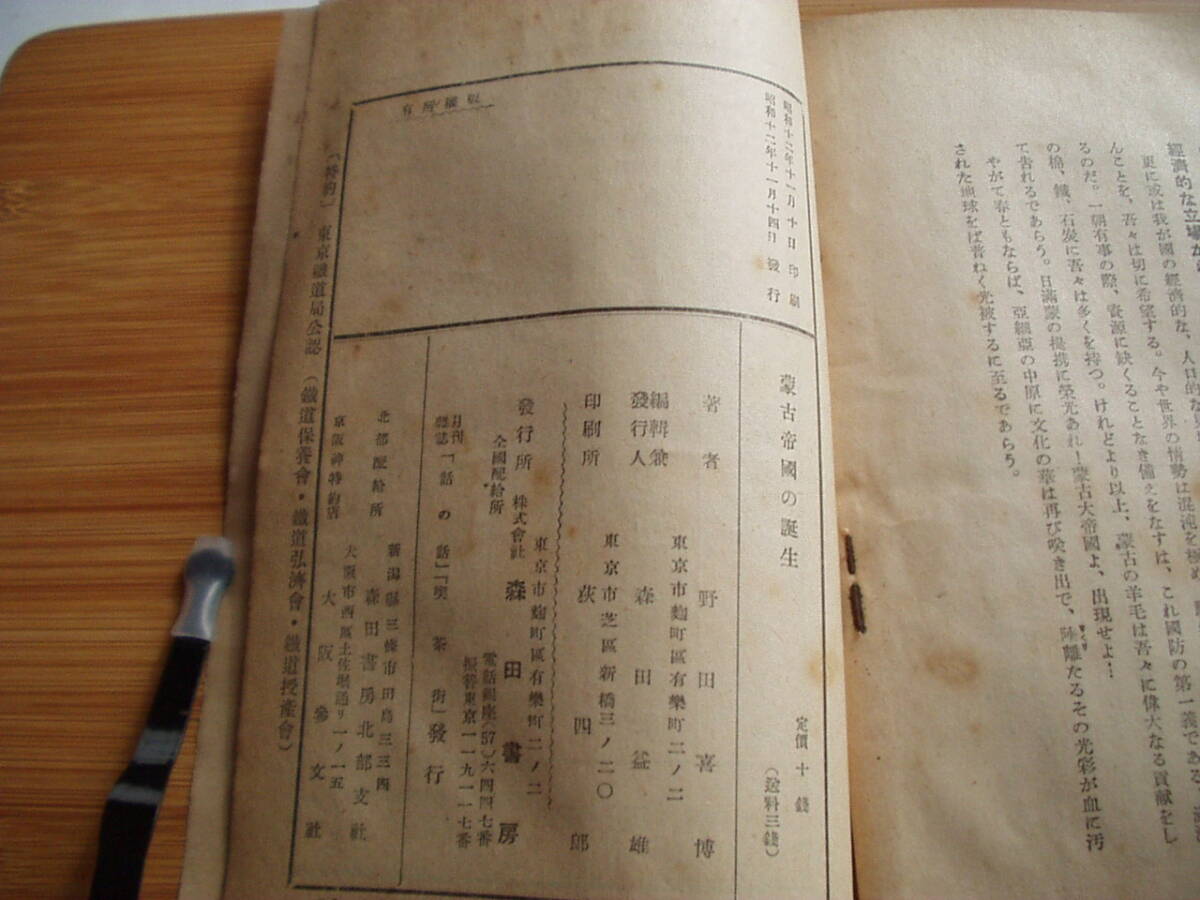 經濟的な立場か
更に或は我が國の經濟的な、人口的な
んことを、吾々は切に希望する。今や世界の情勢は混沌を極め
るのだ。一朝有事の際、資源に缺くることなき備えをなすは、これ國防の第一義である
の棉、鐵、石炭に吾々は多くを持つ。けれどより以上、蒙古の羊毛は吾々に偉大なる貢献をし
て呉れるであらう。日滿蒙の提携に榮光あれ！蒙古大帝國よ、出現せよ…
やがて春ともならば、亞細亞の中原に文化の華は再び咲き出で、陸離たるその光彩が血に汚
された地球をば普ねく光被するに至るであらう。
昭和十二年十一月十日印刷
昭和十二年十一月十四日發行
版權所有
蒙古帝國の誕生
定價十錢
（送料三錢）
著者 野田喜博
東京市麴町區有樂町二ノ二
編輯兼發行人 森田益雄
東京市芝區新橋三ノ二〇
印刷所 荻四郎
東京市麴町區有樂町二ノ二
發行所 株式會社 森田書房
電話銀座(57)六四四七番
振替東京一一九一一七番
月刊雜誌「話の話」「喫茶街」發行
全國配給所
新潟縣三條市田島三三四
北部配給所 森田書房北部支社
大阪市西區土佐堀通リ一ノ一五
京阪神特約店 大阪參文社
「特約」 東京鐵道局公認 （鐵道保養會・鐵道弘濟會・鐵道授產會）